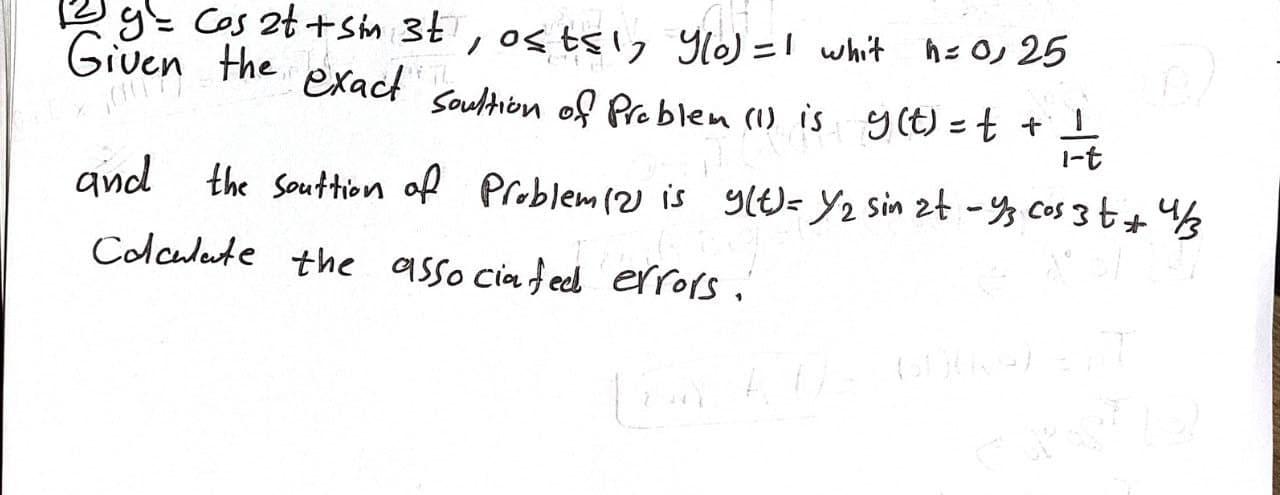 (2) y' = Cos 2t + sin 3t , 0 ≤ t ≤ 1, y(0) = 1 whit h = 0,25
Given the exact soultion of Problen (1) is y(t) = t + 1/1-t
and the souttion of Problem (2) is y(t) = 1/2 sin 2t - 1/3 cos 3t + 4/3
Calculate the associated errors.